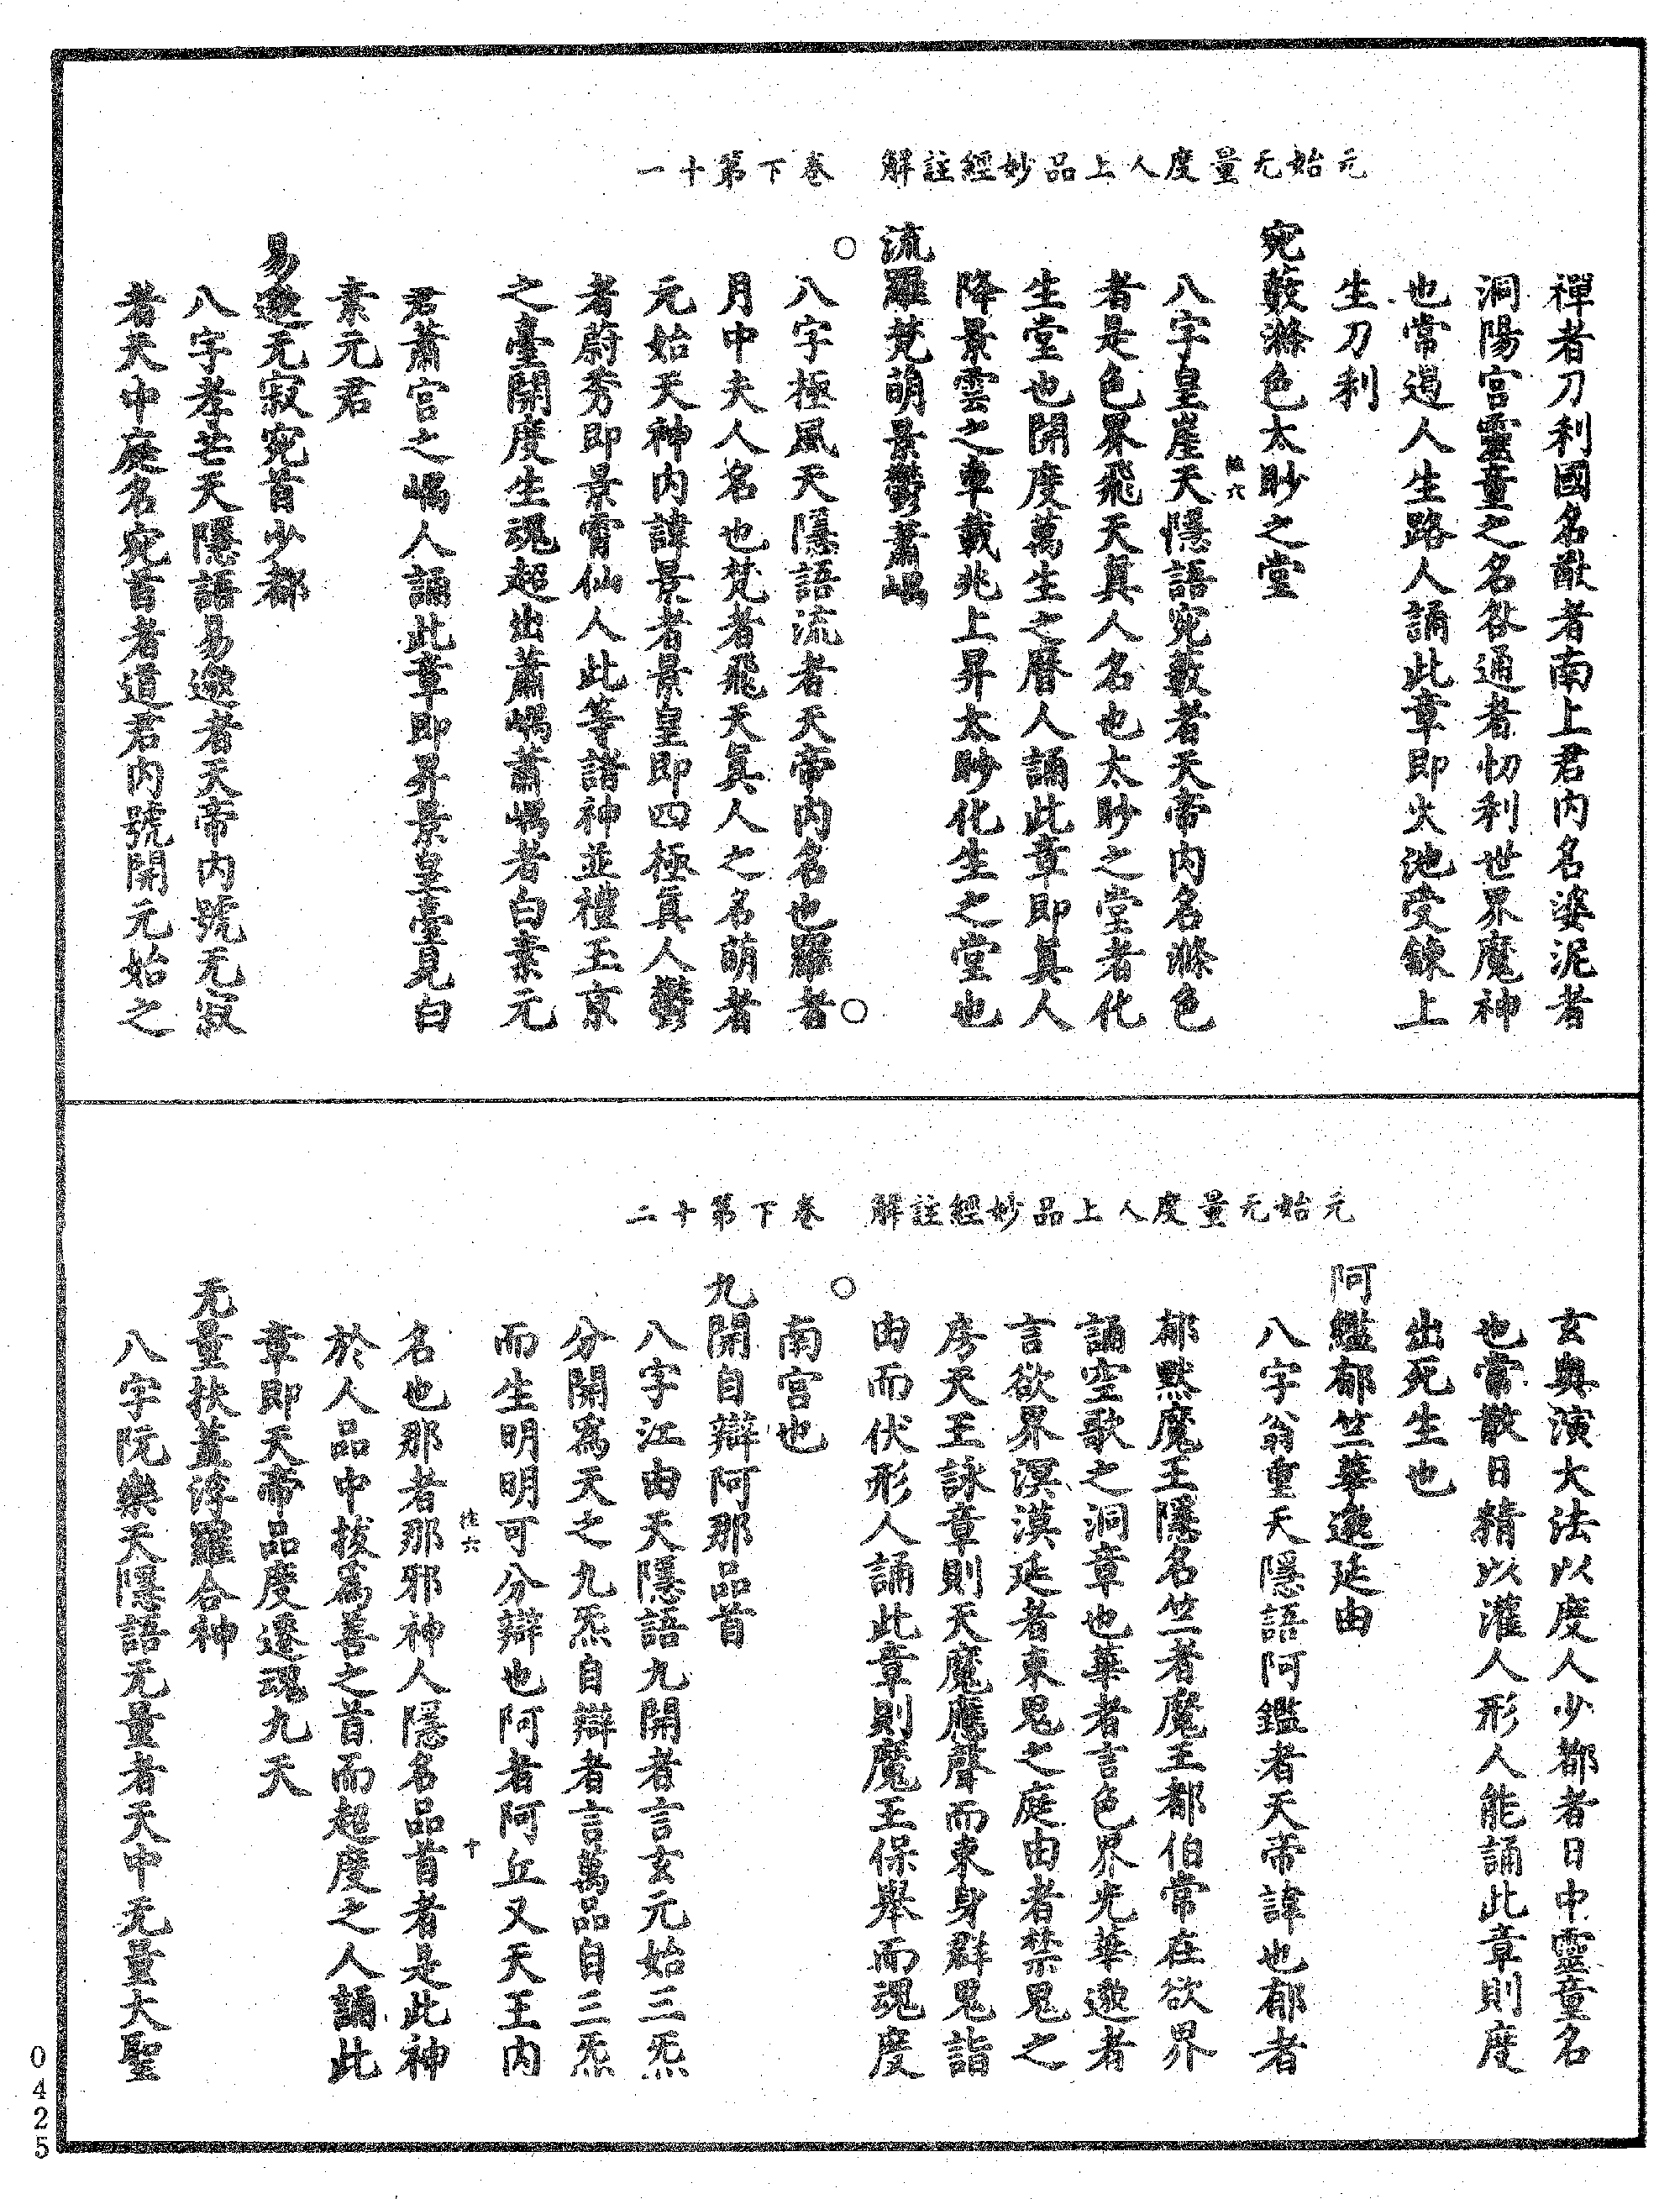 元始无量度人上品妙經註解　卷下第十一
禪者刀利國名猷者南上君內名婆泥者
洞陽宮靈童之名咎通者忉利世界魔神
也常遏人生路人誦此章即火池受鍊上
生刀利
宛藪滌色太眇之堂
八字皇崖天隱語宛藪者天帝內名滌色
者是色界飛天真人名也太眇之堂者化
生堂也開度萬生之曆人誦此章即真人
降景雲之車載兆上昇太眇化生之堂也
流羅梵萌景鬱蕭嵎
八字極風天隱語流者天帝內名也羅者
月中夫人名也梵者飛天真人之名萌者
元始天神內諱景者景皇即四極真人鬱
者蔚秀即景霄仙人此等諸神並禮玉京
之臺開度生魂超出蕭嵎蕭嵎者白素元
君蕭宮之嵎人誦此章即昇景皇臺見白
素元君
易邈无寂宛首少都
八字孝芒天隱語易邈者天帝內號无寂
者天中庭名宛首者道君內號開元始之
元始无量度人上品妙經註解　卷下第十二
玄奧演大法以度人少都者日中靈童名
也常散日精以灌人形人能誦此章則度
出死生也
阿𨰹郁竺華邈延由
八字翁重天隱語阿鑑者天帝諱也郁者
郁黙魔王隱名竺者魔王都伯常在欲界
誦空歌之洞章也華者言色界光華邈者
言欲界溟漠延者束鬼之庭由者禁鬼之
房天王詠章則天魔應聲而束身群鬼詣
由而伏形人誦此章則魔王保舉而魂度
南宮也
九開自辯阿那品首
八字江由天隱語九開者言玄元始三炁
分開為天之九炁自辯者言萬品自三炁
而生明明可分辯也阿者阿丘又天王內
名也那者那邪神人隱名品首者是此神
於人品中拔為善之首而超度之人誦此
章即天帝品度遷魂九天
无量扶蓋浮羅合神
八字阮樂天隱語无量者天中无量大聖
0425